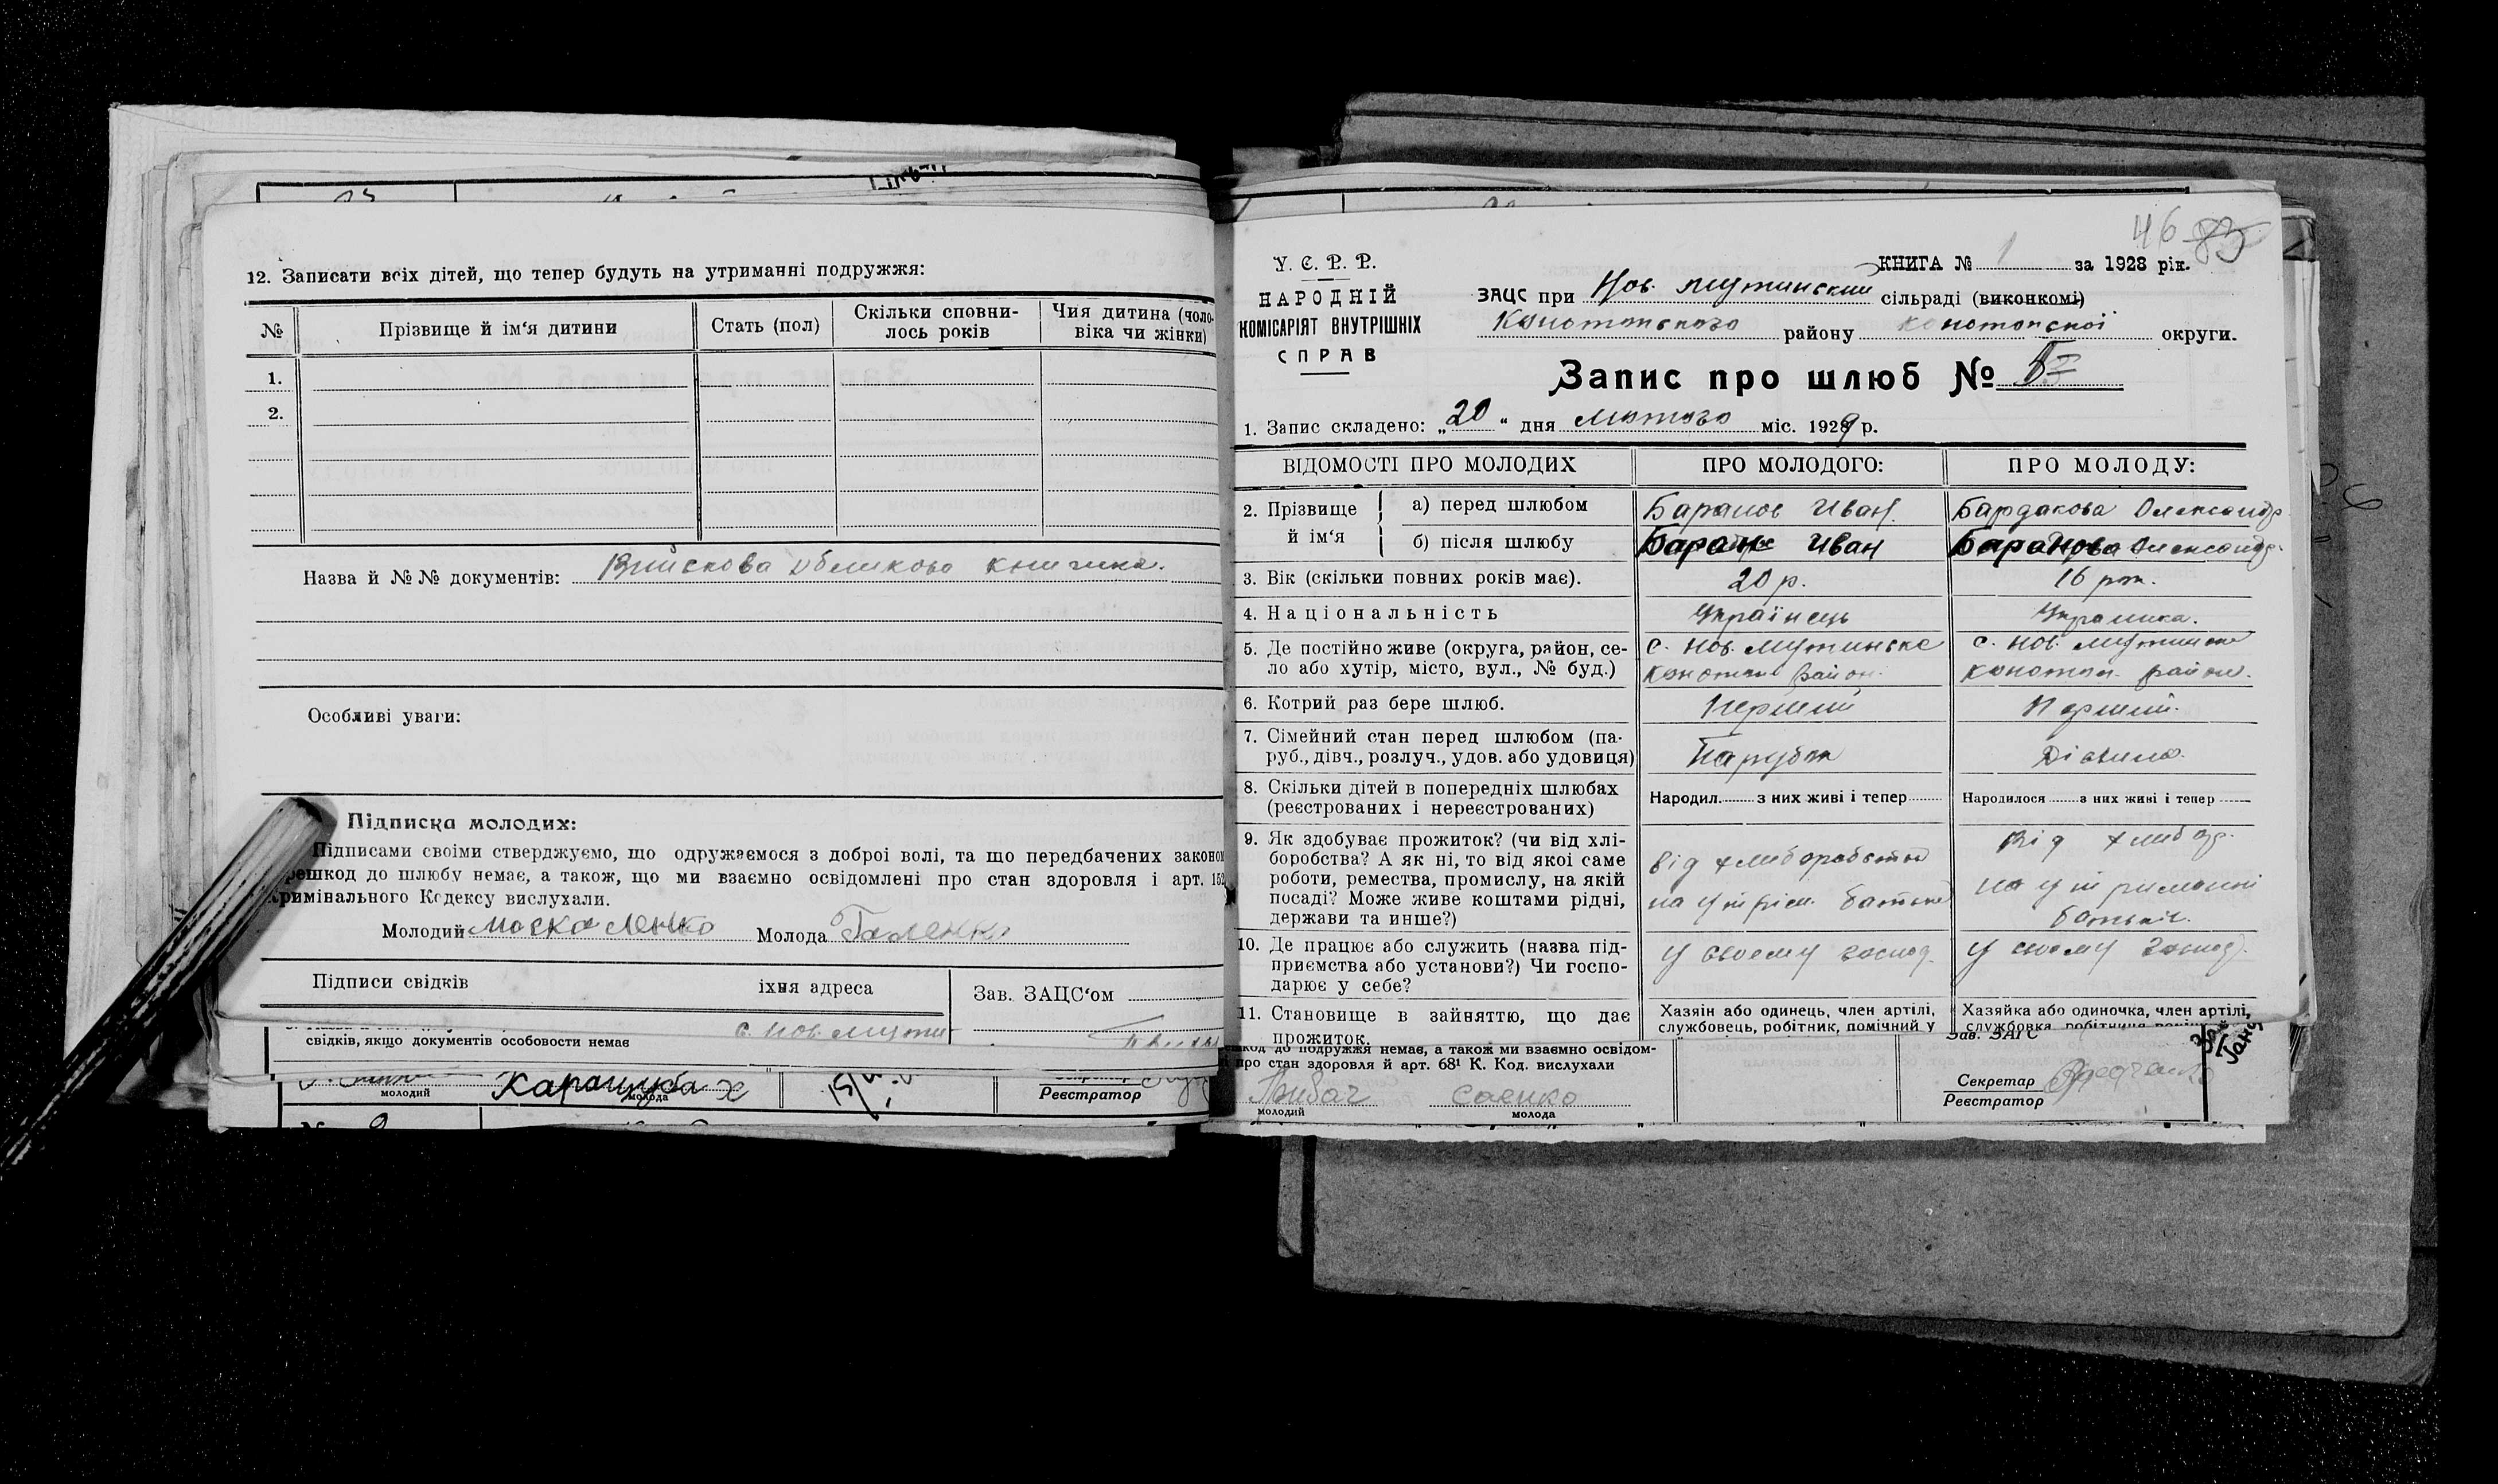 12. Записати всіх дітей, що тепер будуть на утриманні подружжя:
№ Прізвище й ім‘я дитини Стать (пол) Скільки сповни-лось років Чия дитина (чоло-віка чи жінки)
1.
2.
Назва й №№ документів: Війскова обликова книжка.
Особливі уваги:
Підписка молодих:
Підписами своїми стверджуємо, що одружаємося з доброї волі, та що передбачених законом
решкод до шлюбу немає, а також, що ми взаємно освідомлені про стан здоровля і арт. 152
кримінального Кодексу вислухали.
Молодий Москаленко Молода Галенко
Підписи свідків їхня адреса Зав. ЗАЦС‘ом
свідків, якщо документів особовости немає с. Нов. Мути
молодий Карашуба х молода Реєстратор
46 83
У. С. Р. Р.
НАРОДНІЙ
КОМІСАРІЯТ ВНУТРІШНІХ
СПРАВ
КНИГА № 1 за 1928 рік.
ЗАЦС при Нов. Мутинский сільраді (виконкомі)
Конотопського району Конотопської округи.
Запис про шлюб №
1. Запис складено: „20“ дня лютого міс. 1929 р.
ВІДОМОСТІ ПРО МОЛОДИХ ПРО МОЛОДОГО: ПРО МОЛОДУ:
2. Прізвище й ім‘я а) перед шлюбом Баранов Иван. Бардакова Олександр
б) після шлюбу Иван Баранова Олександр.
3. Вік (скільки повних років має). 20 р. 16 рок.
4. Національність Українець Украинка.
5. Де постійно живе (округа, район, се-
ло або хутір, місто, вул., № буд.)
с. Нов. Мутинське
Конотоп район.
с. Нов. Мутинске
Конотоп. район.
6. Котрий раз бере шлюб. Перший Перший.
7. Сімейний стан перед шлюбом (па-
руб., дівч., розлуч., удов. або удовиця)
Парубок Дівчина.
8. Скільки дітей в попередніх шлюбах
(реєстрованих і нереєстрованих)
Народил. з них живі і тепер Народилося з них живі і тепер
9. Як здобуває прожиток? (чи від хлі-
боробства? А як ні, то від якої саме
роботи, ремества, промислу, на якій
посаді? Може живе коштами рідні,
держави та инше?)
від хлиборобства
на утрим. батьків
Від хлибор.
на утриманні
батьків.
10. Де працює або служить (назва під-
приємства або установи?) Чи госпо-
дарює у себе?
У своему господ. У своему господ.
11. Становище в зайняттю, що дає
прожиток.
Хазяін або одинець, член артілі,
службовець, робітник, помічний у
Хазяйка або одиночка, член артілі,
службовка, робітниця
до подружжя немає, а також ми взаємно освідом-
про стан здоровля й арт. 68¹ К. Код. вислухали
Зав. ЗАГС
молодий Саенко молода
Секретар
Реєстратор